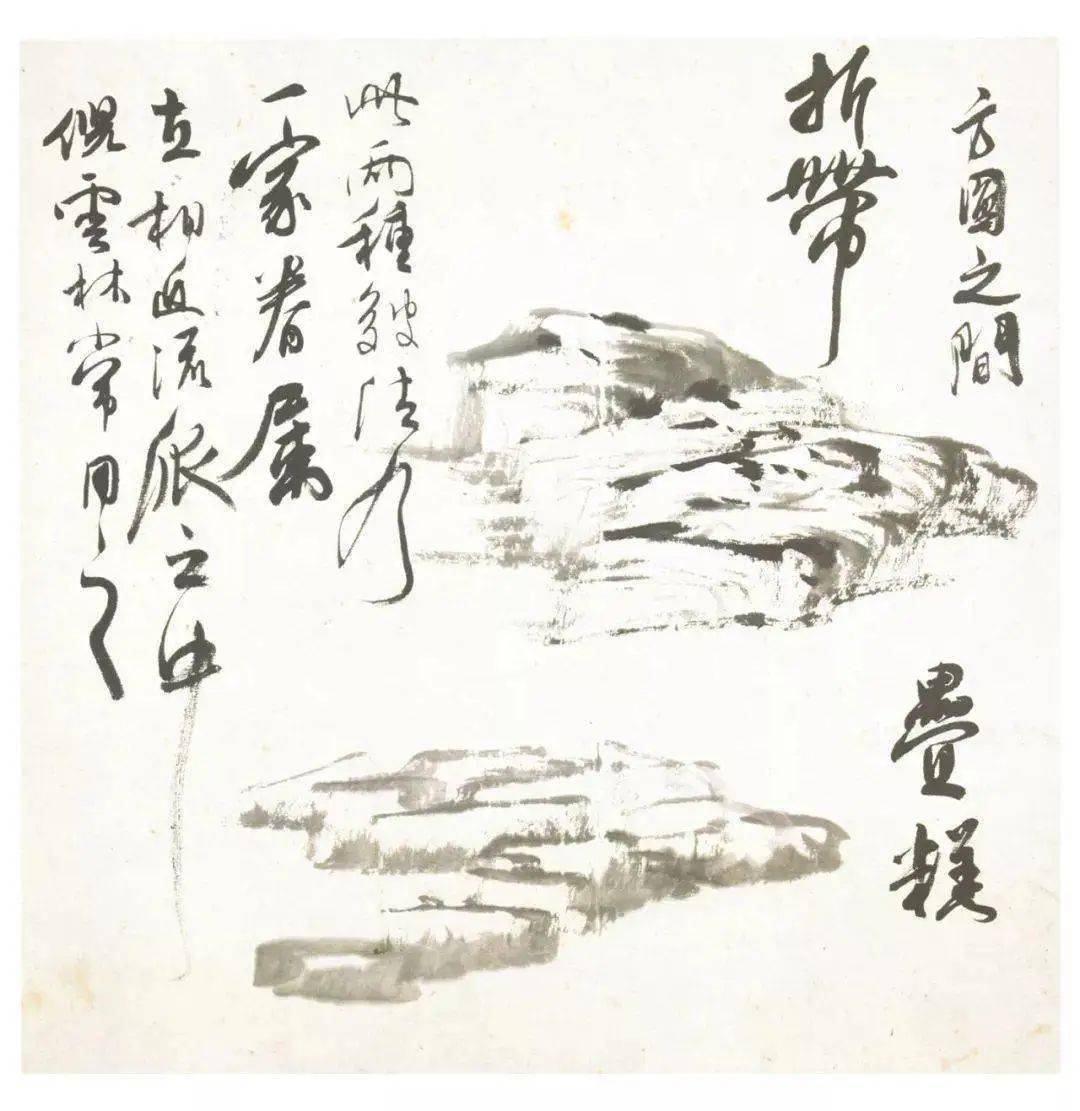 方圓之間
折帶
疊糕
此兩種皴法乃
一家眷屬
在相近流派之中
倪雲林常用之